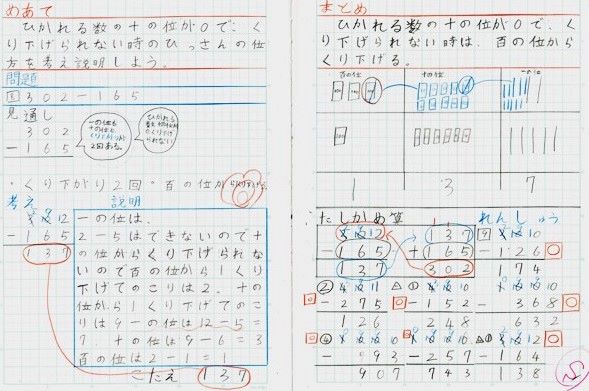 めあて
ひかれる数の十の位が0で、く
り下げられない時のひっさんの仕
方を考え説明しよう。
問題
302-165
見通し
302
-165
一の位も
十の位も
くり下がりが
2回ある。
ひかれる
数の十の位が
0でくり下げ
られない
・くり下がり2回・百の位から
考え
説明
12
-165
137
一の位は、
2-5はできないので十
の位からくり下げられな
いので百の位から1くり
下げてのこりは2、十の
位から1くり下げてのこ
りは9一の位は12-5=
7、十の位は9-6=3
百の位は2-1=1
こたえ 137
まとめ
ひかれる数の十の位が0で、く
り下げられない時は、百の位から
くり下げる。
百の位 十の位 一の位
1 3 7
たしかめ算
れんしゅう
-165
137
137
+165
302
-126
174
②
-275
126
①
-152
248
-368
632
④
-93
907
-257
743
①
-164
138